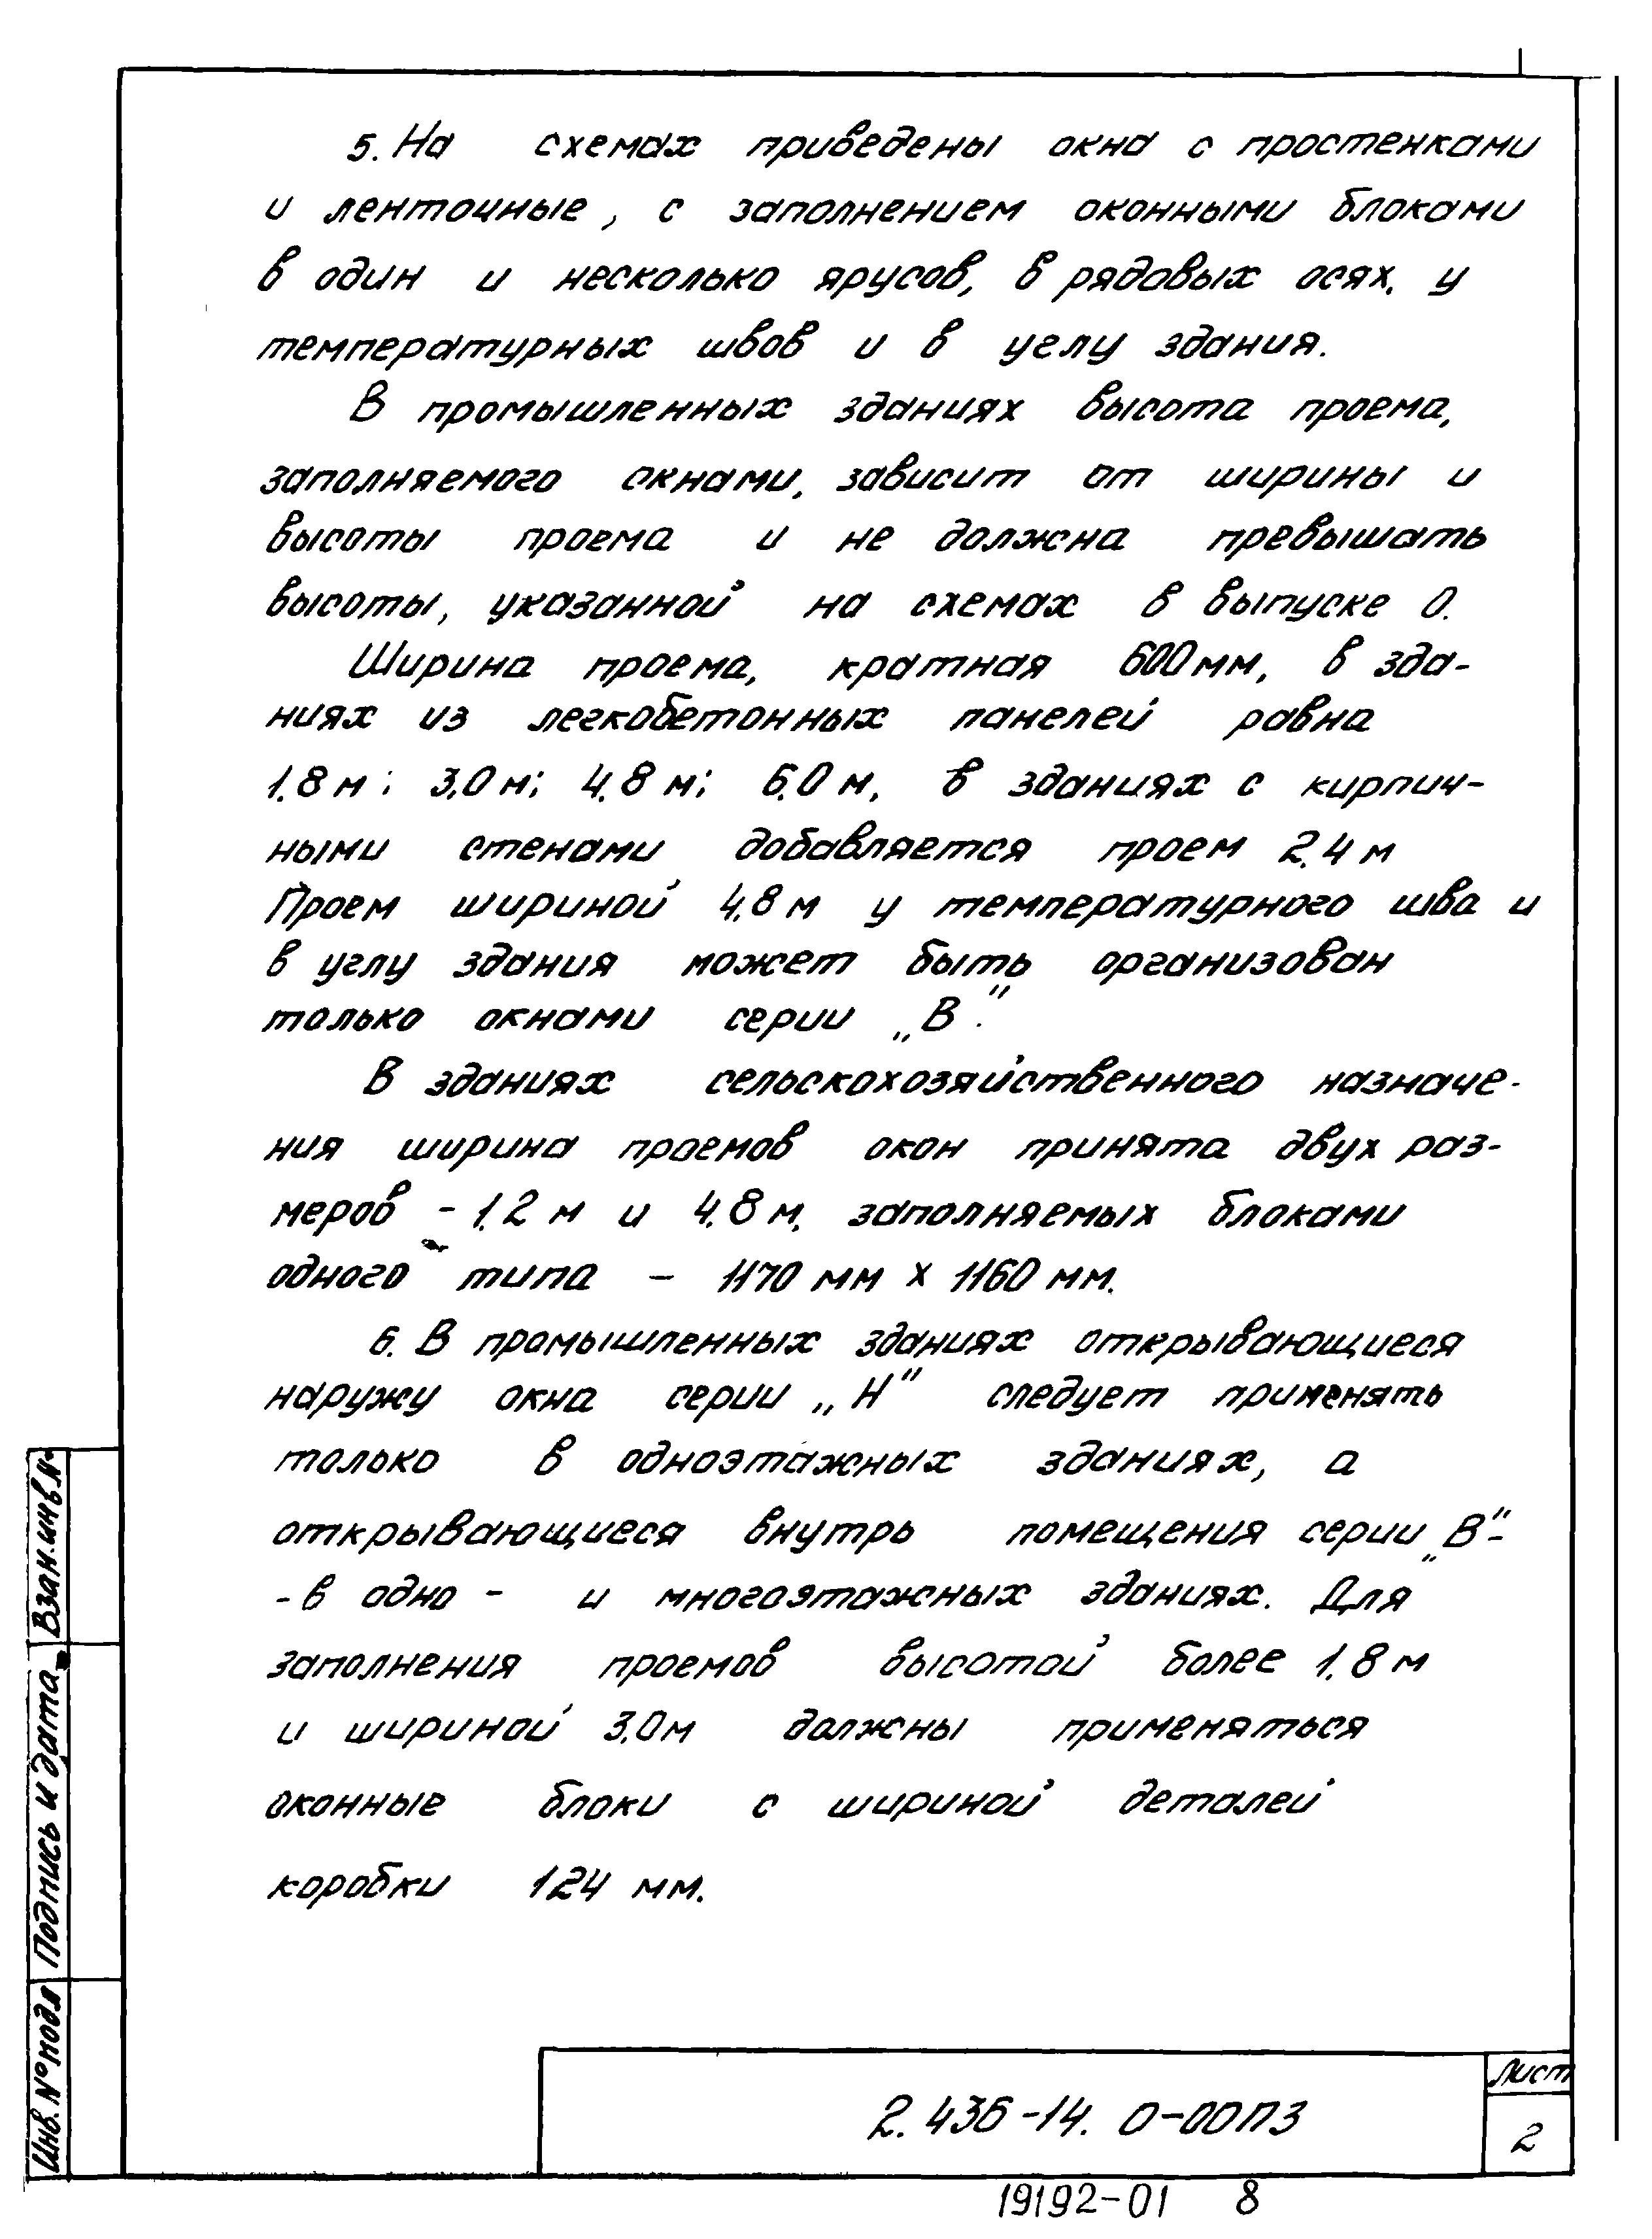 5. На схемах приведены окна с простенками
и ленточные, с заполнением оконными блоками
в один и несколько ярусов, в рядовых осях, у
температурных швов и в углу здания.
В промышленных зданиях высота проема,
заполняемого окнами, зависит от ширины и
высоты проема и не должна превышать
высоты, указанной на схемах в выпуске 0.
Ширина проема, кратная 600 мм, в зда-
ниях из легкобетонных панелей равна
1.8 м; 3.0 м; 4.8 м; 6.0 м, в зданиях с кирпич-
ными стенами добавляется проем 2.4 м
Проем шириной 4.8 м у температурного шва и
в углу здания может быть организован
только окнами серии „В".
В зданиях сельскохозяйственного назначе-
ния ширина проемов окон принята двух раз-
меров - 1.2 м и 4.8 м, заполняемых блоками
одного типа - 1170 мм х 1160 мм.
6. В промышленных зданиях открывающиеся
наружу окна серии „Н" следует применять
только в одноэтажных зданиях, а
открывающиеся внутрь помещения серии „В"-
- в одно - и многоэтажных зданиях. Для
заполнения проемов высотой более 1.8 м
и шириной 3.0 м должны применяться
оконные блоки с шириной деталей
коробки 124 мм.
Взан.инв.№
Подпись и дата
Инв. № подл
2.436-14. 0-00ПЗ
Лист
2
19192-01 8